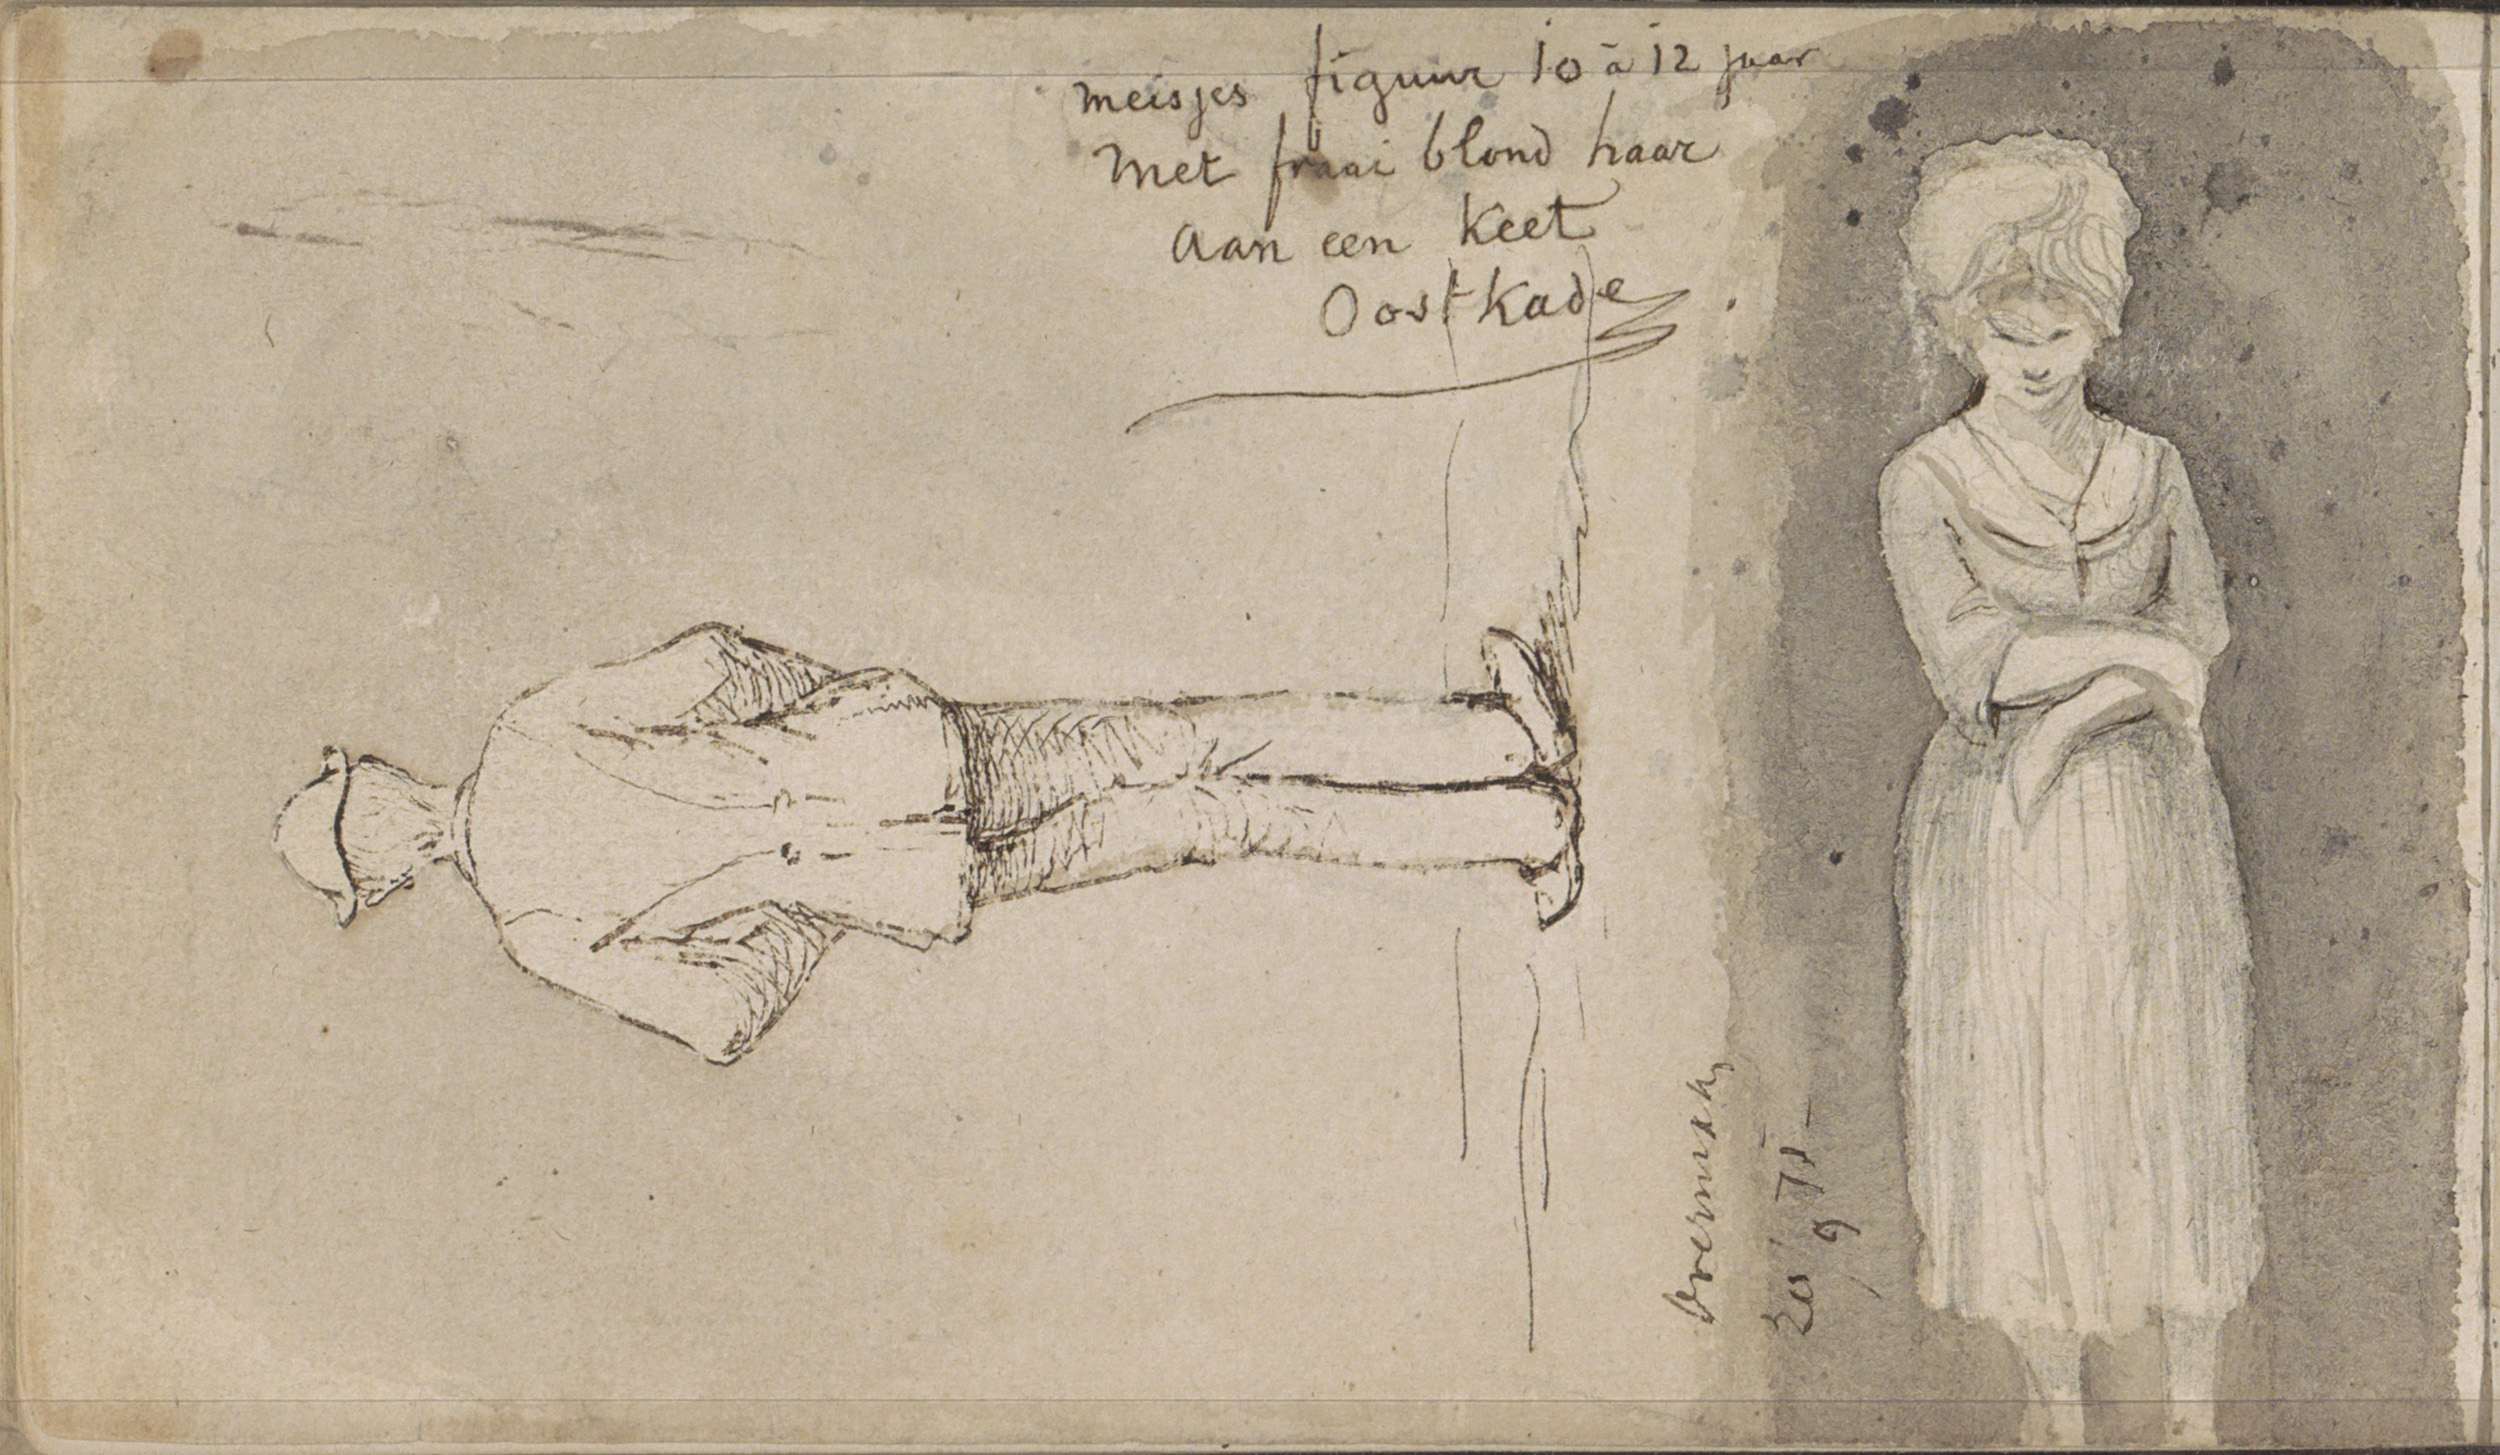 meisjes figuur 10 à 12 jaar
met fraai blond haar
aan een Keet
Oostkade